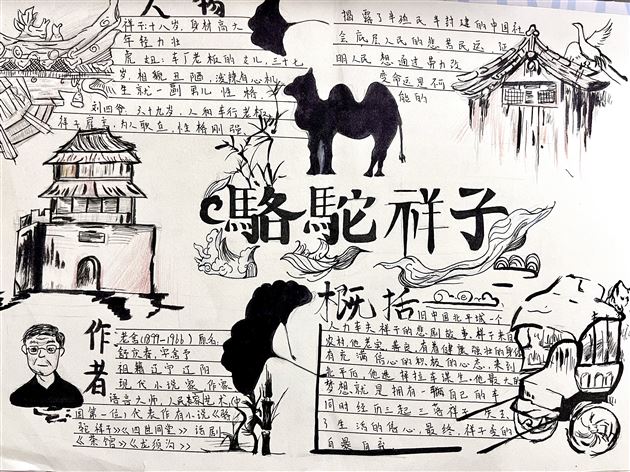 人物
祥子:十八岁,身材高大
年轻力壮
虎妞:车厂老板的女儿,三十七
岁,相貌丑陋,泼辣有心机
生就一副男儿性格,
刘四爷:六十九岁,人和车行老板
祥子雇主,为人耿直,性格刚强
揭露了半殖民半封建的中国社
会底层人民的悲苦民远,证
明人民想通过努力改
变命运是不可
能的
駱駝祥子
作者
老舍(1899-1966)原名
舒庆春,字舍予
祖籍辽宁辽阳
现代小说家作家
语言大师,人民艺术
国第一位,代表作有小说《骆
驼祥子》《四世同堂》话剧
《茶馆》《龙须沟》
概括
旧中国北平城一个
人力车夫祥子的悲剧故事,祥子来自
农村,他老实善良,有着健康强壮的身体
有充满信心的积极的心态,来到
北平后,他选择拉车谋生,他最大的
梦想就是拥有一辆自己的车
同时经历三起三落祥子失去
了生活的信心,最终,祥子变的
自暴自弃